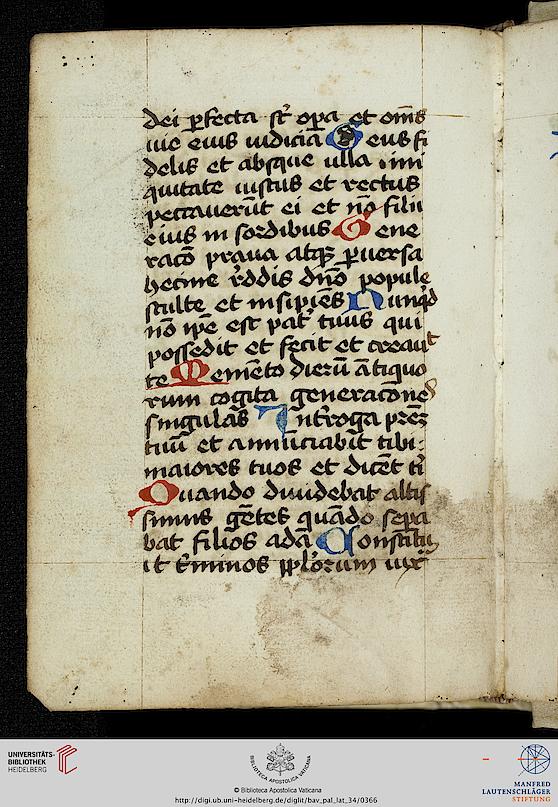 dei ꝑfecta st̄ opa et om̄s
uie eius iudicia Deus fi
delis et absque ulla ini
quitate iustus et rectus
peccauerūt ei et nō filii
eius in sordibus Gene
racō praua atqꝫ ꝑuersa
heccine rͦddis dn̄o popule
stulte et insipiēs Nunqͥd
nō ip̄e est pat̓ tuus qui
possedit et fecit et creauit
te Memēto dierū ātiquo
rum cogita generacōnes
singulas Int̓roga
tuū et annūciabit tibi:
maiores tuos et dicēt ti
Quando diuidebat altis
simus gētes quādo sepa
bat filios adā Constitu
it t̓minos pplorum iux
UNIVERSITÄTS-
BIBLIOTHEK
HEIDELBERG
BIBLIOTHECA APOSTOLICA VATICANA
© Biblioteca Apostolica Vaticana
http://digi.ub.uni-heidelberg.de/diglit/bav_pal_lat_34/0366
MANFRED
LAUTENSCHLÄGER
STIFTUNG